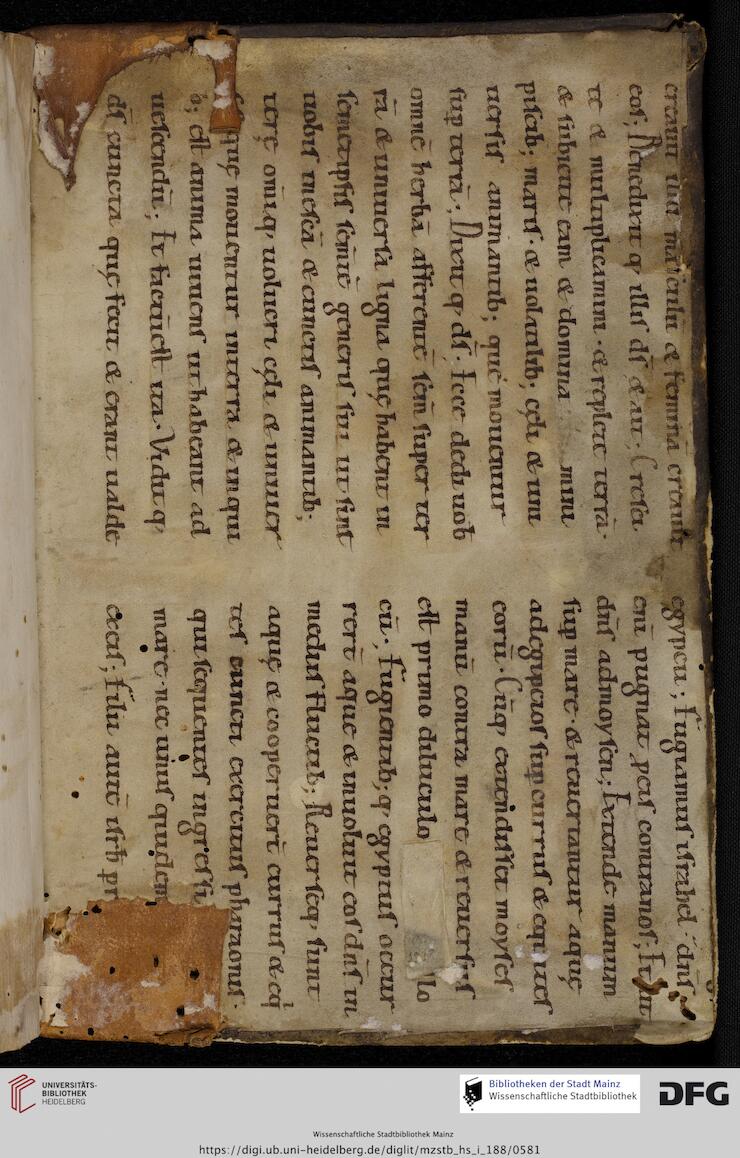 creauit illũ masculũ & feminã creauit
eos; Benedixit q; illis dſ & ait; Creſci
te & multiplicamini · & replete terrã·
& ſubicite eam & domina mini
piſcib; maris · & uolatilib; cęli & uni
uerſis animantib; quę mouentur
ſup terrã; Dixit q; dſ · Ecce dedi uob
omnẽ herbã afferentẽ ſem̃ ſuper ter
rã & uniuerſa ligna quę habent in
ſemetipſis ſem̃tẽ generis ſui ut ſint
uobis in eſcã & cunctis animantib;
terrę om̃iq; uolucri cęli & uniuer
ſis quę mouentur in terra & in qui
b; eſt anima uiuens ut habeant ad
ueſcendũ; Et factũ eſt ita · Vidit q;
dſ cuncta quę fecit & erant ualde
egyptii; fugiamus iſrahel · dñs
eni pugnat p eis contra nos; Et ait
dñs ad moyſen; Extende manum
ſup mare · & reuertantur aquę
ad egiptios ſup currus & equites
eorũ · Cũq; extendiſſet moyſes
manũ contra mare & reuerſus
eſt primo diluculo lo
cũ · fugientib; q; egyptiis occur
rerũt aque & inuoluit eos dñs in
mediis fluctib; Reuerſeq; ſunt
aquę & cooperuerũt currus & eq
tes cuncti exercitus pharaonis ·
qui ſequentes ingreſſi
mare · nec unus quidem
ex eis; filii autẽ iſrł pr
UNIVERSITÄTS-
BIBLIOTHEK
HEIDELBERG
Bibliotheken der Stadt Mainz
Wissenschaftliche Stadtbibliothek
DFG
Wissenschaftliche Stadtbibliothek Mainz
https://digi.ub.uni-heidelberg.de/diglit/mzstb_hs_i_188/0581